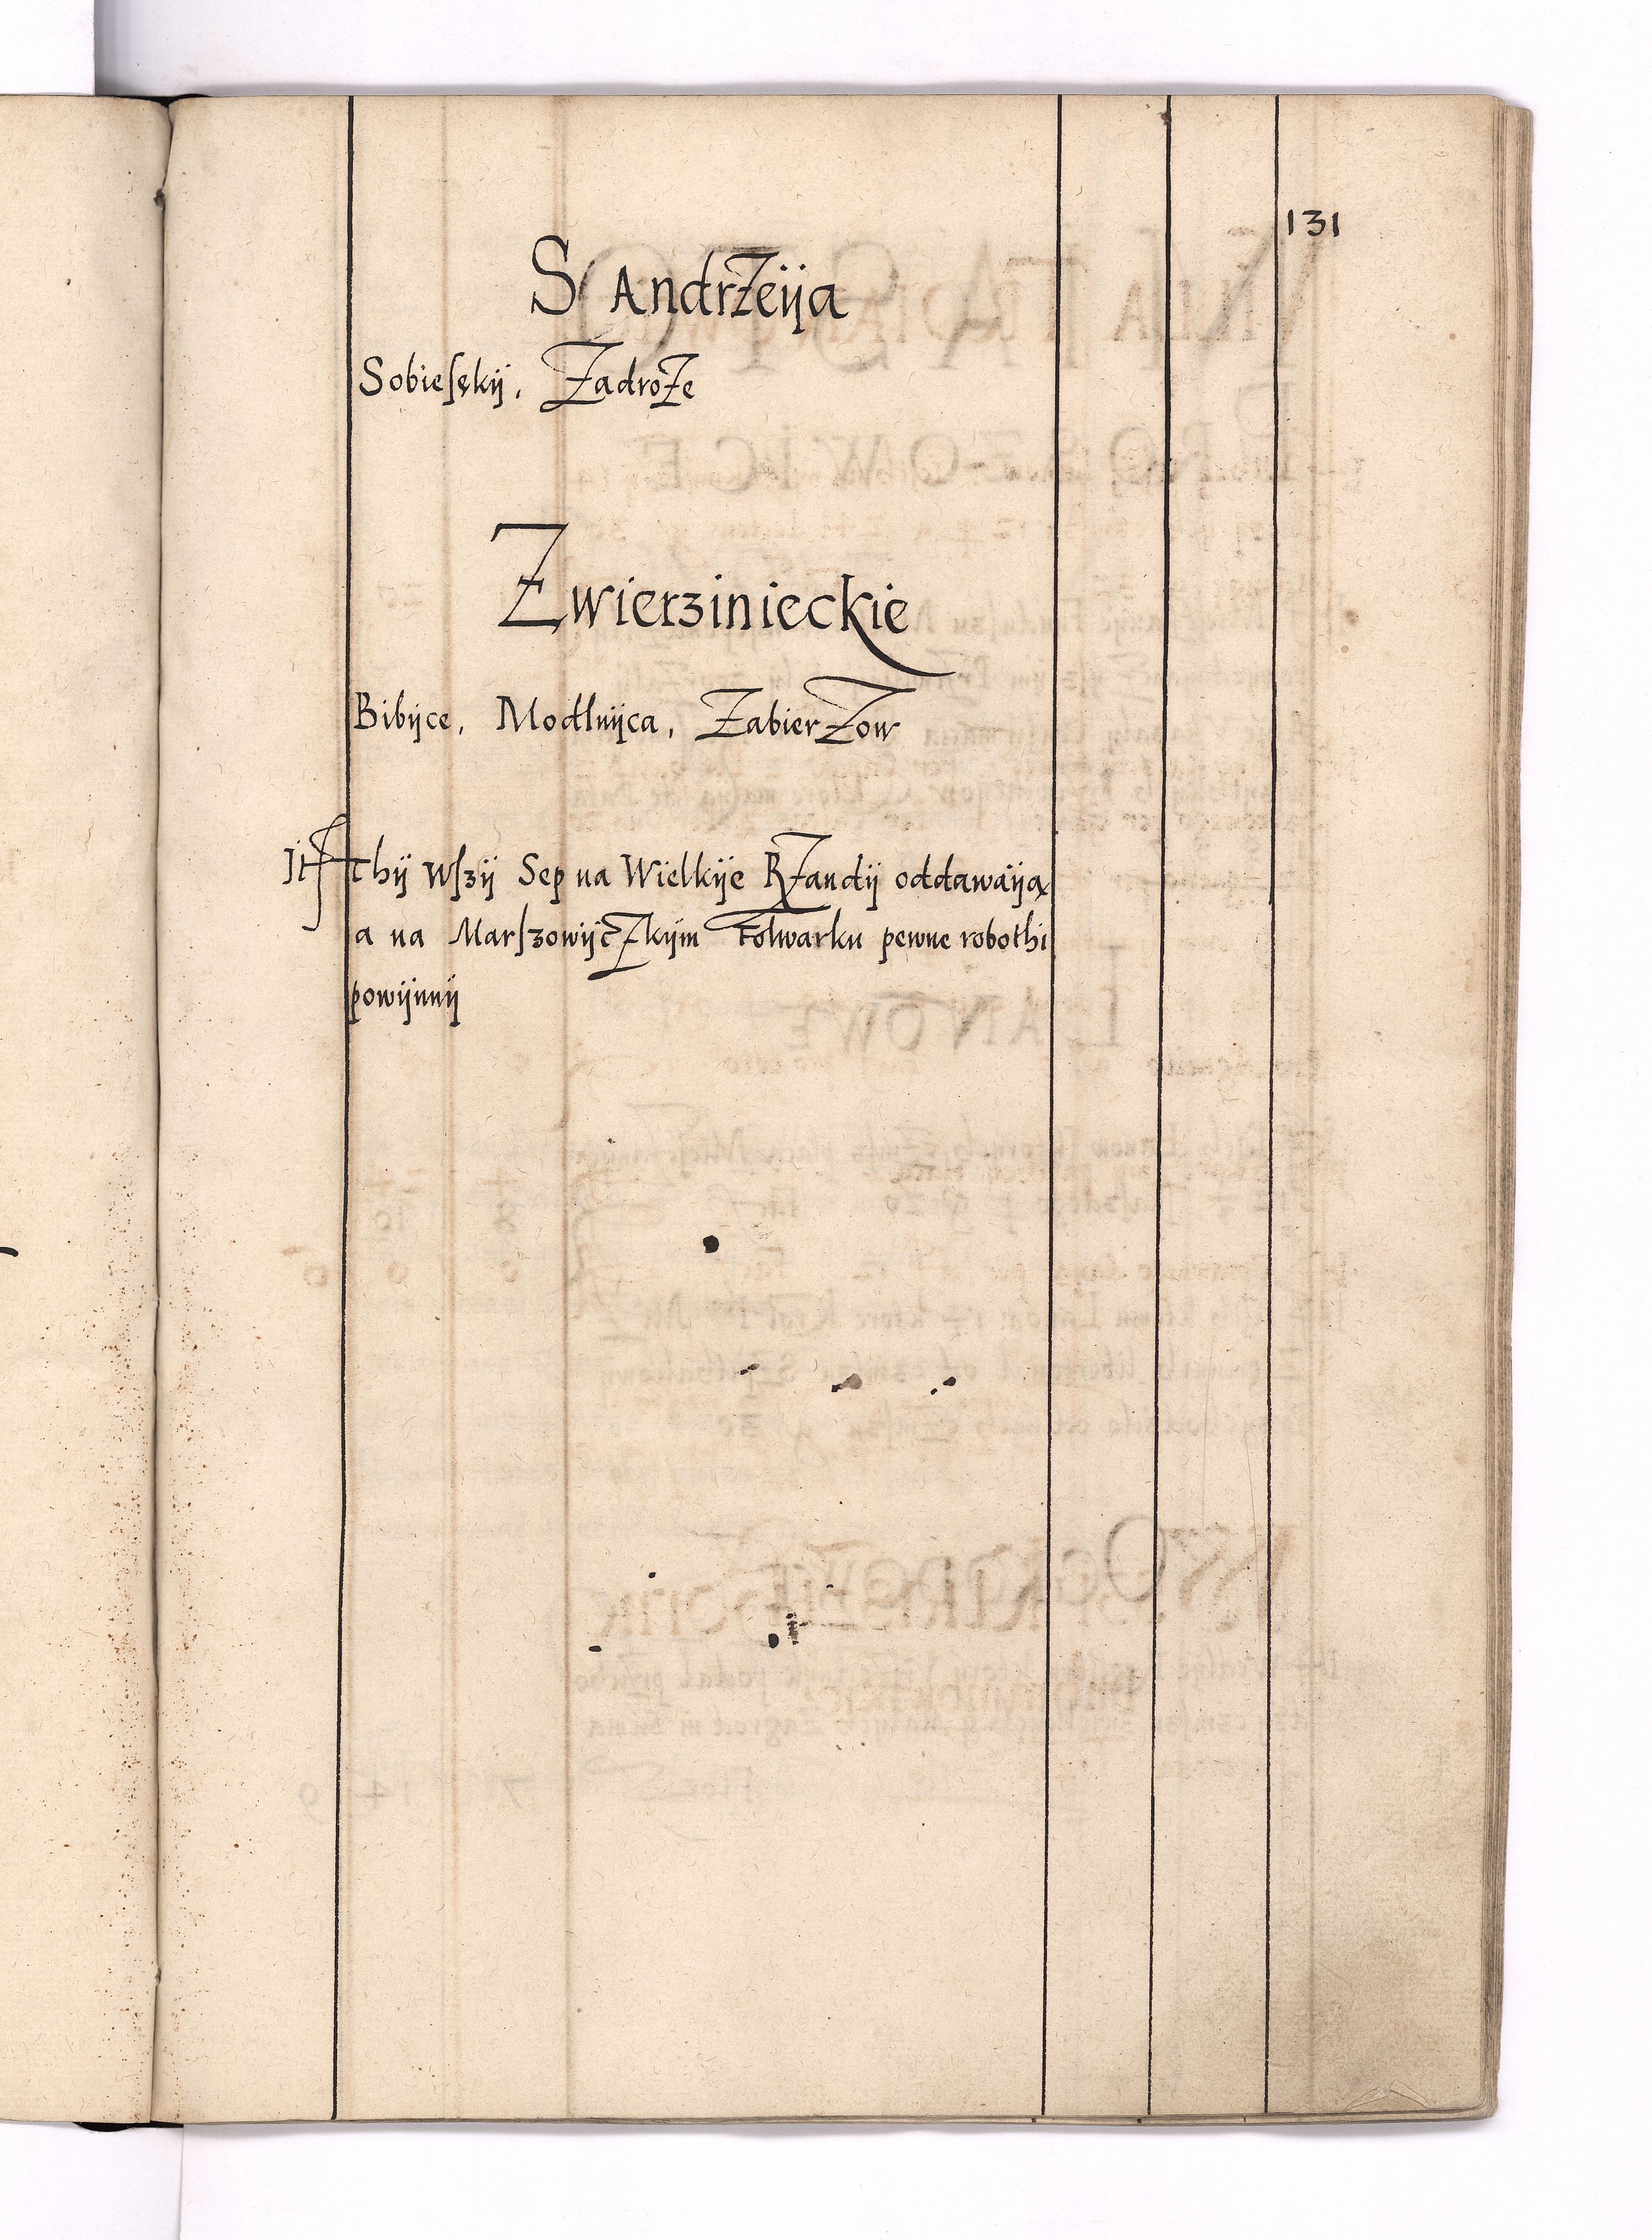 131
S AndrZeija
Sobieſskij, ZadroZe
Zwierzinieckie
Bibijce, Modlnijca, ZabierZow
Jt Thij wſzij Sep na Wielkije RZandij oddawaija
a na Marſzowijczkijm Folwarku pewne robothi
powijnnij